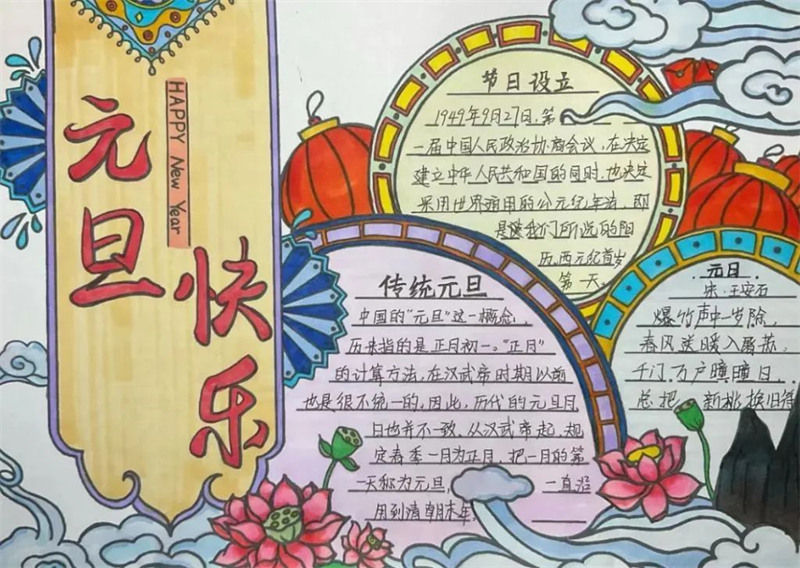 元旦
快乐
HAPPY New Year
节日设立
1949年9月27日,第
一届中国人民政治协商会议,在决定
建立中华人民共和国的同时,也决定
采用世界通用的公元纪年法,即
是我们所说的阳
历,西元纪首岁
第一天。
传统元旦
中国的“元旦”这一概念,
历来指的是正月初一。“正月”
的计算方法,在汉武帝时期以前
也是很不统一的,因此,历代的元旦月
日也并不一致,从汉武帝起,规
定春季一月为正月,把一月的第
一天称为元旦, 一直沿
用到清朝末年
元日
宋·王安石
爆竹声中一岁除,
春风送暖入屠苏,
千门万户曈曈日,
总把新桃换旧符